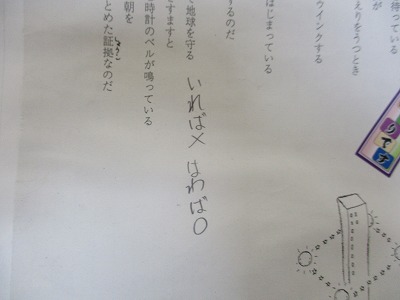 待っている
が
えりをうつとき
ウインクする
はじまっている
るのだ
で地球を守る
すますと
時計のベルが鳴っている
朝を
とめた証拠なのだ
しょうこ
いれば× はわば○
りです